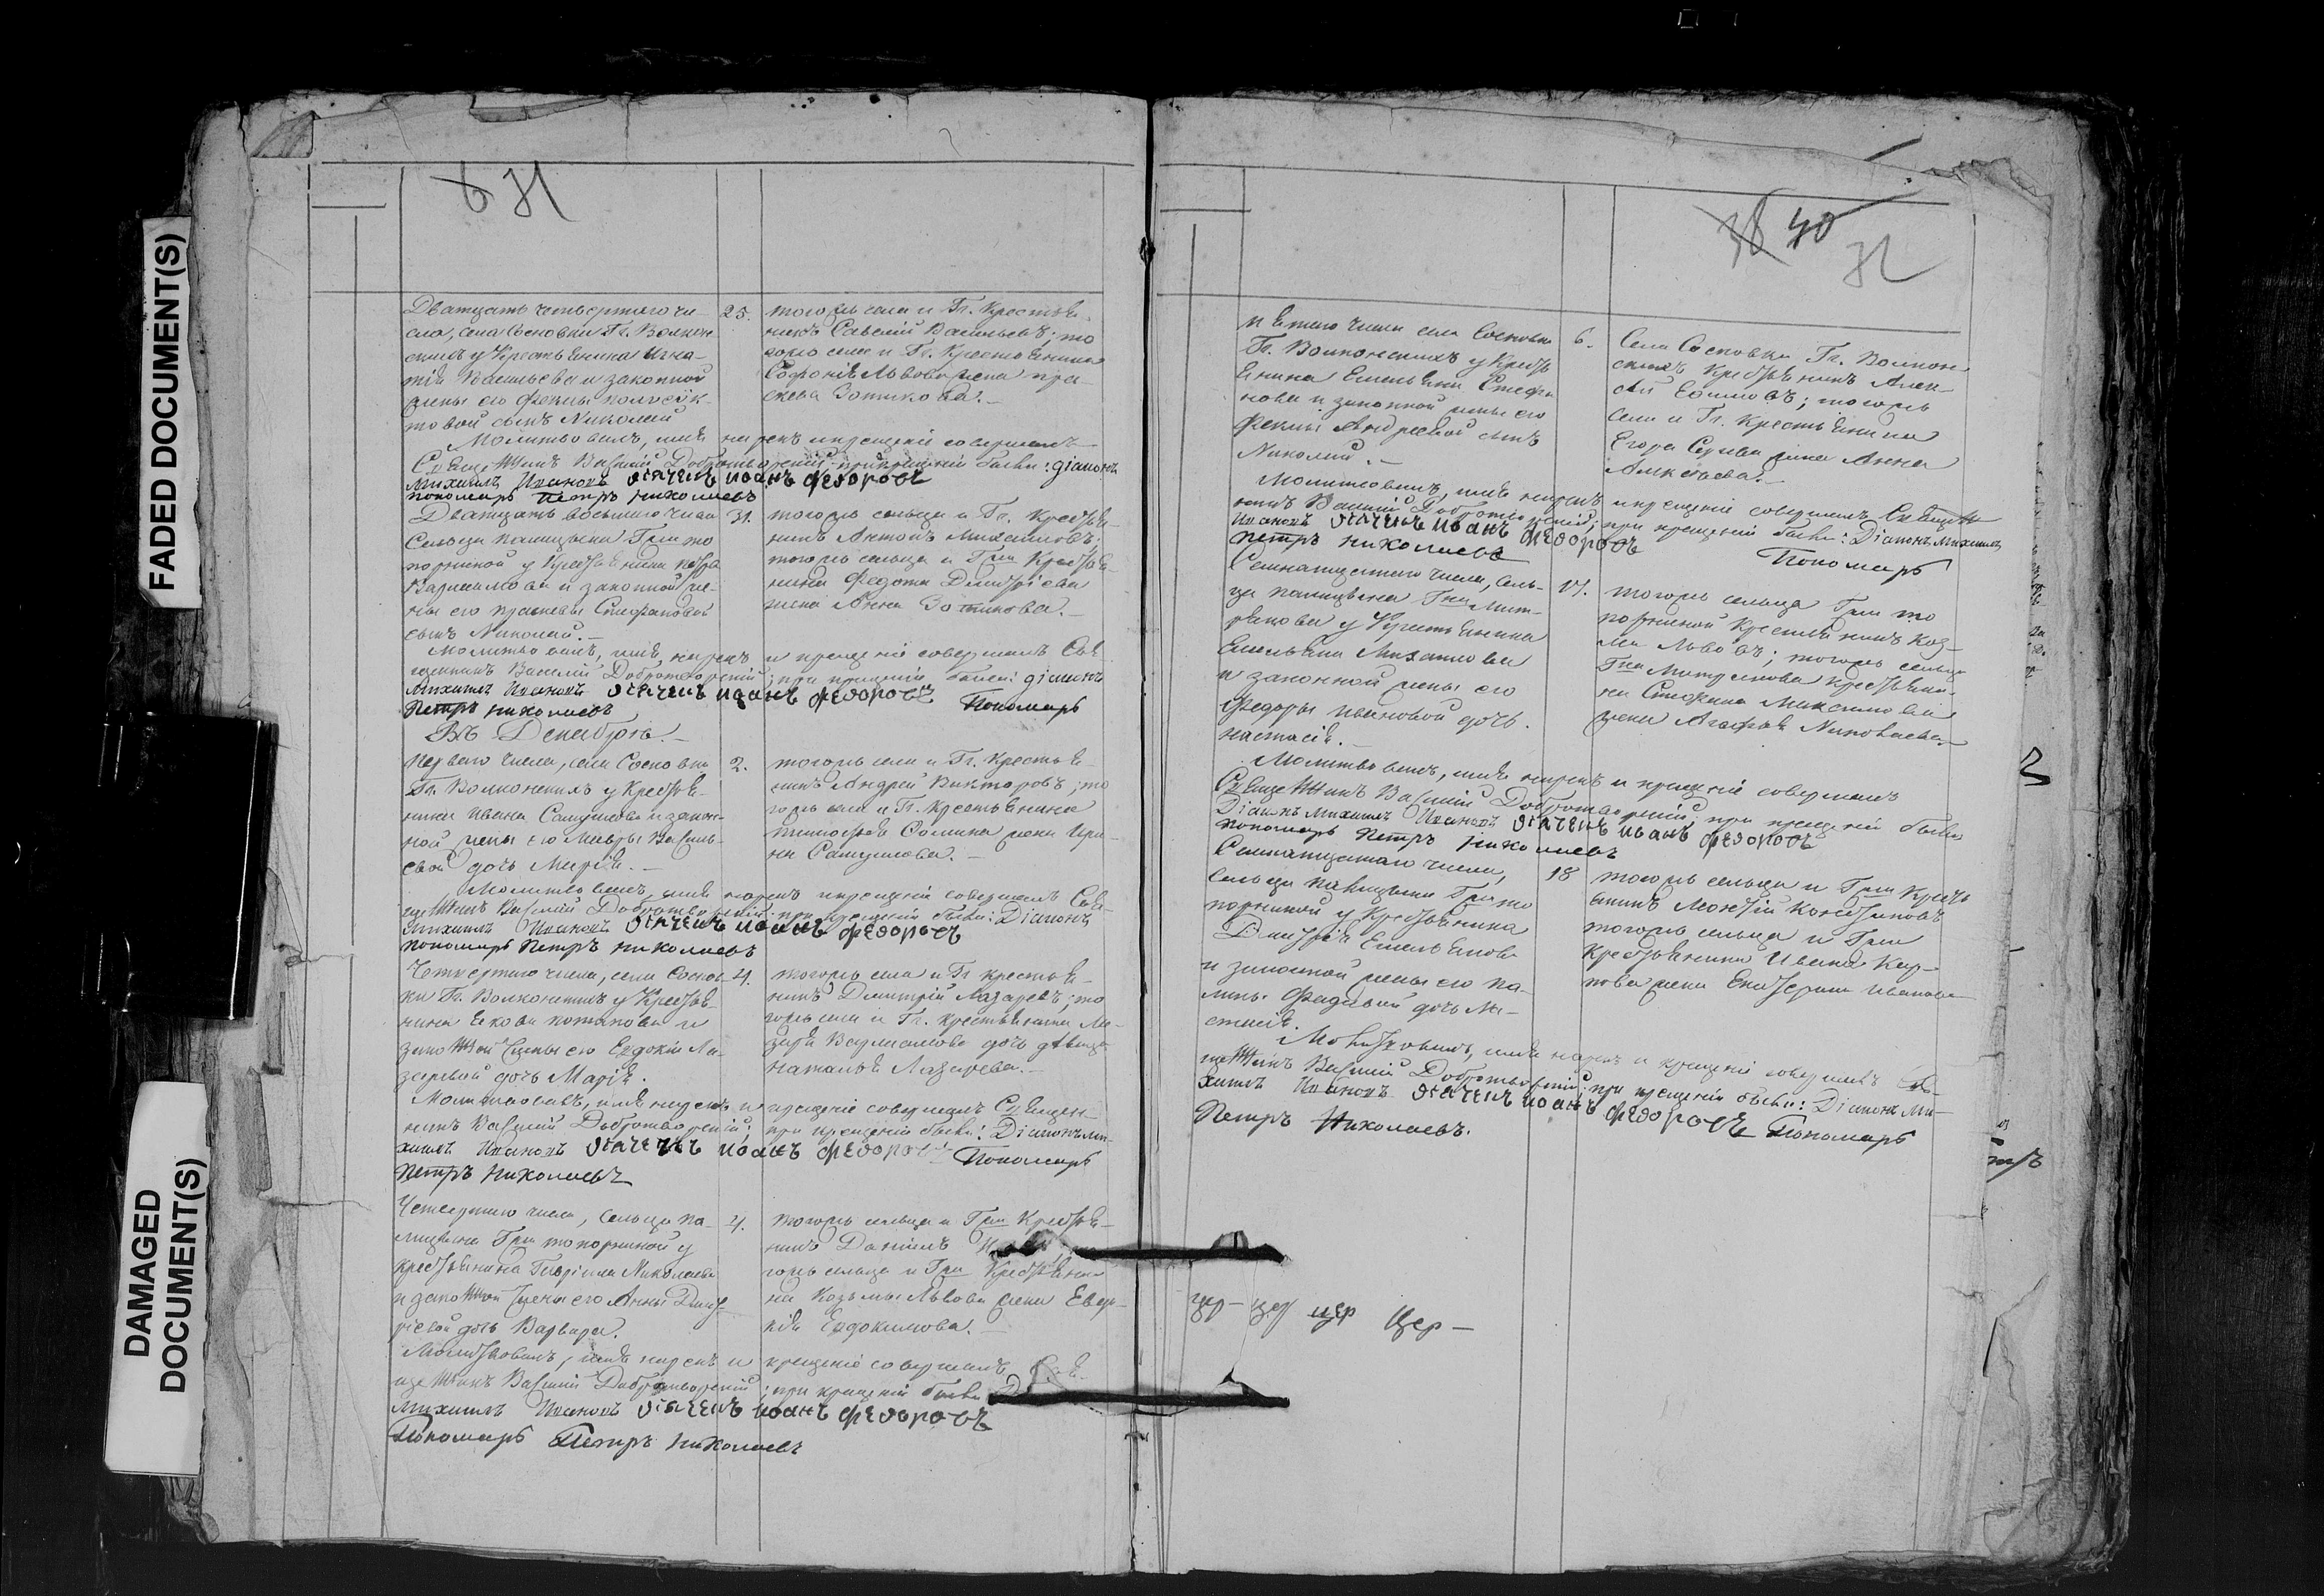 FADED DOCUMENT(S)
DAMAGED
DOCUMENT(S)
31
Дватцать четвертаго чи-
сла, села Сосновки Гг. Волкон-
скихъ у Крестьянина Игна-
тія Васильева и законной
жены его Феклы
сынъ Николай
25.
тогожъ села и Гг. Крестья-
нинъ Савелій Васильевъ; то
гожъ села и Гг. Крестьянина
Софонія Львова жена Пра-
скева Зотикова.
Молитвовалъ, имя нарекъ и крещеніе совершалъ
Священникъ Василій Добротворскій; при крещеніи были: Діаконъ
Михаилъ Ивановъ дьячекъ Иоанъ Федоровъ
пономарь Петръ Николаевъ
Дватцать восьмаго числа
Сельца Палицына Гжи То
порниной у Крестьянина Петра
Варламова и законной же-
ны его Праскевы Стефановой
сынъ Николай.
31.
тогожъ сельца и Гг. Крестья-
нинъ Антонъ Михайловъ;
тогожъ сельца и Гжи Крестья-
нина Федота Димитріева
жена Анна Зотикова.
Молитвовалъ, имя нарекъ и крещеніе совершалъ Свя
щенникъ Василій Добротворскій; при крещеніи были: Діаконъ
Михаилъ Ивановъ дьячекъ Иоанъ Федоровъ Пономарь
Петръ Николаевъ
Въ Декабрѣ.
Перваго числа, села Сосновки
Гг. Волконскихъ у Крестья-
нина Ивана Самуилова и закон-
ной жены его Мавры Василь-
евой дочь Марія.
2.
тогожъ села и Гг. Крестья-
нинъ Андрей Викторовъ; то
гожъ села и Гг. Крестьянина
Тимофея Фомина жена Ири-
на Самуилова.
Молитвовалъ, имя нарекъ и крещеніе совершалъ Свя-
щенникъ Василій Добротворскій; при крещеніи были: Діаконъ
Михаилъ Ивановъ дьячекъ Иоанъ Федоровъ
пономарь Петръ Николаевъ
Четвертаго числа, села Соснов-
ки Гг. Волконскихъ у Крестья-
нина Якова Потапова и
законной жены его Евдокіи Ла-
заревой дочь Марія.
4.
тогожъ села и Гг. Крестья-
нинъ Димитрій Лазаревъ; то
гожъ села и Гг. Крестьянина Ла-
заря Варламова дочь девица
Наталья Лазарева.
Молитвовалъ, имя нарекъ и крещеніе совершалъ Священ-
никъ Василій Добротворскій; при крещеніи были: Діаконъ Ми-
хаилъ Ивановъ дьячекъ Иоанъ Федоровъ Пономарь
Петръ Николаевъ
Четвертаго числа, сельца Па-
лицына Гжи Топорниной у
крестьянина Гавріила Николаева
и законной жены его Анны Дмит-
ріевой дочь Варвара.
4.
тогожъ сельца и Гжи Крестья-
нинъ Даніилъ
гожъ сельца и Гжи Крестьяни-
на Козьмы Львова жена Евдо-
кія Евдокимова.
Молитвовалъ, имя нарекъ и крещеніе совершалъ Свя-
щенникъ Василій Добротворскій; при крещеніи были
Михаилъ Ивановъ дьячекъ Иоанъ Федоровъ
Пономарь Петръ Николаевъ
40
31
Пятаго числа села Сосновки
Гг. Волконскихъ у Кресть
янина Емельяна Стефа
нова и законной жены его
Феклы Андреевой сынъ
Николай.
6.
Села Сосновки Гг. Волкон-
скихъ Крестьянинъ Алек-
сѣй Ефимовъ; тогожъ
села и Гг. Крестьянина
Егора жена Анна
Алексѣева.
Молитвовалъ, имя нарекъ и крещеніе совершалъ Священ
никъ Василій Добротворскій; при крещеніи были: Діаконъ Михаилъ
Ивановъ дьячекъ Иоанъ Федоровъ Пономарь
Петръ Николаевъ
Семнатцатаго числа, сель-
ца Палицына Гна Мит-
рекова у Крестьянина
Емельяна Михайлова
и законной жены его
Федоры Ивановой дочь
Настасія.
17.
тогожъ сельца Гжи То
порниной Крестьянинъ Коз-
ма Львовъ; тогожъ сельца
Гна Митрекова Крестьяни-
на Стефана Максимова
жена Агафья Николаева
Молитвовалъ, имя нарекъ и крещеніе совершалъ
Священникъ Василій Добротворскій; при крещеніи были
Діаконъ Михаилъ Ивановъ дьячекъ Иоанъ Федоровъ
пономарь Петръ Николаевъ
Семнатцатаго числа,
Сельца Палицына Гжи То
порниной у Крестьянина
Дмитрія Емельянова
и законной жены его Па-
лагеи дочь На-
стасія.
18
тогожъ сельца и Гжи Кресть
янинъ
тогожъ сельца и Гжи
Крестьянина Ивана Кар-
пова жена Екатерина Иванова
Молитвовалъ, имя нарекъ и крещеніе совершалъ Свя-
щенникъ Василій Добротворскій; при крещеніи были: Діаконъ Ми-
хаилъ Ивановъ дьячекъ Иоанъ Федоровъ Пономарь
Петръ Николаевъ.
цер- цер цер Цер-